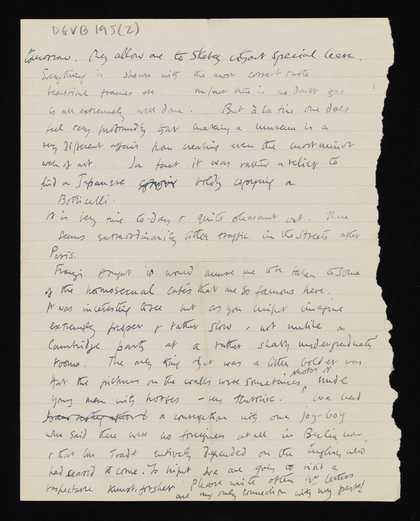 DGVB 195(2)
tomorrow. They allow me to sketch without special leave.
Everything is shown with the most correct taste
beautiful frames etc. in fact there is no doubt
is all extremely well done. But I a tiny one does
feel very profoundly that making a museum is a
very different affair from creating even the most minor
work of art. In fact it was rather a relief to
find a Japanese boldly copying a
Botticelli.
It is very fine to-day & quite pleasant out. There
seems extraordinarily little traffic in the streets after
Paris.
thought it would amuse me to be taken to some
of the homosexual cafés that are so famous here.
It was interesting to see but as you might imagine
extremely proper & rather slow, not unlike a
Cambridge party at a rather shabby undergraduate's
rooms. The only thing that was a little bolder was
that the pictures on the walls were sometimes photos of nude
young men with horses - very Theocritic. We had
a conversation with one joy-boy
who said there were no foreigners at all in Berlin now,
& that his trade entirely depended on the English who
had ceased to come. To night we are going to visit a
respectable Please write often yr letters
are my only connection with my past!